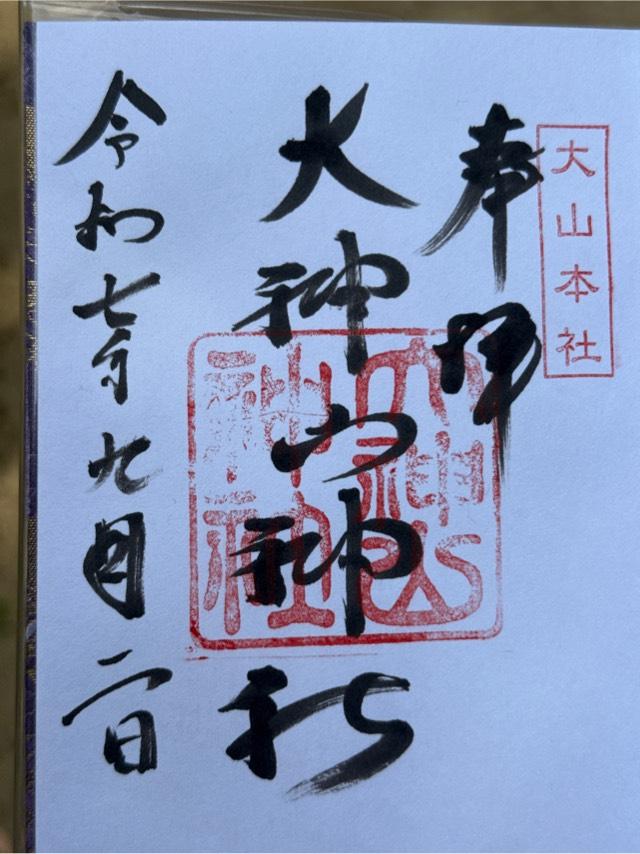 大山本社
奉拝
大神山神社
大神山
神社
令和七年九月一日